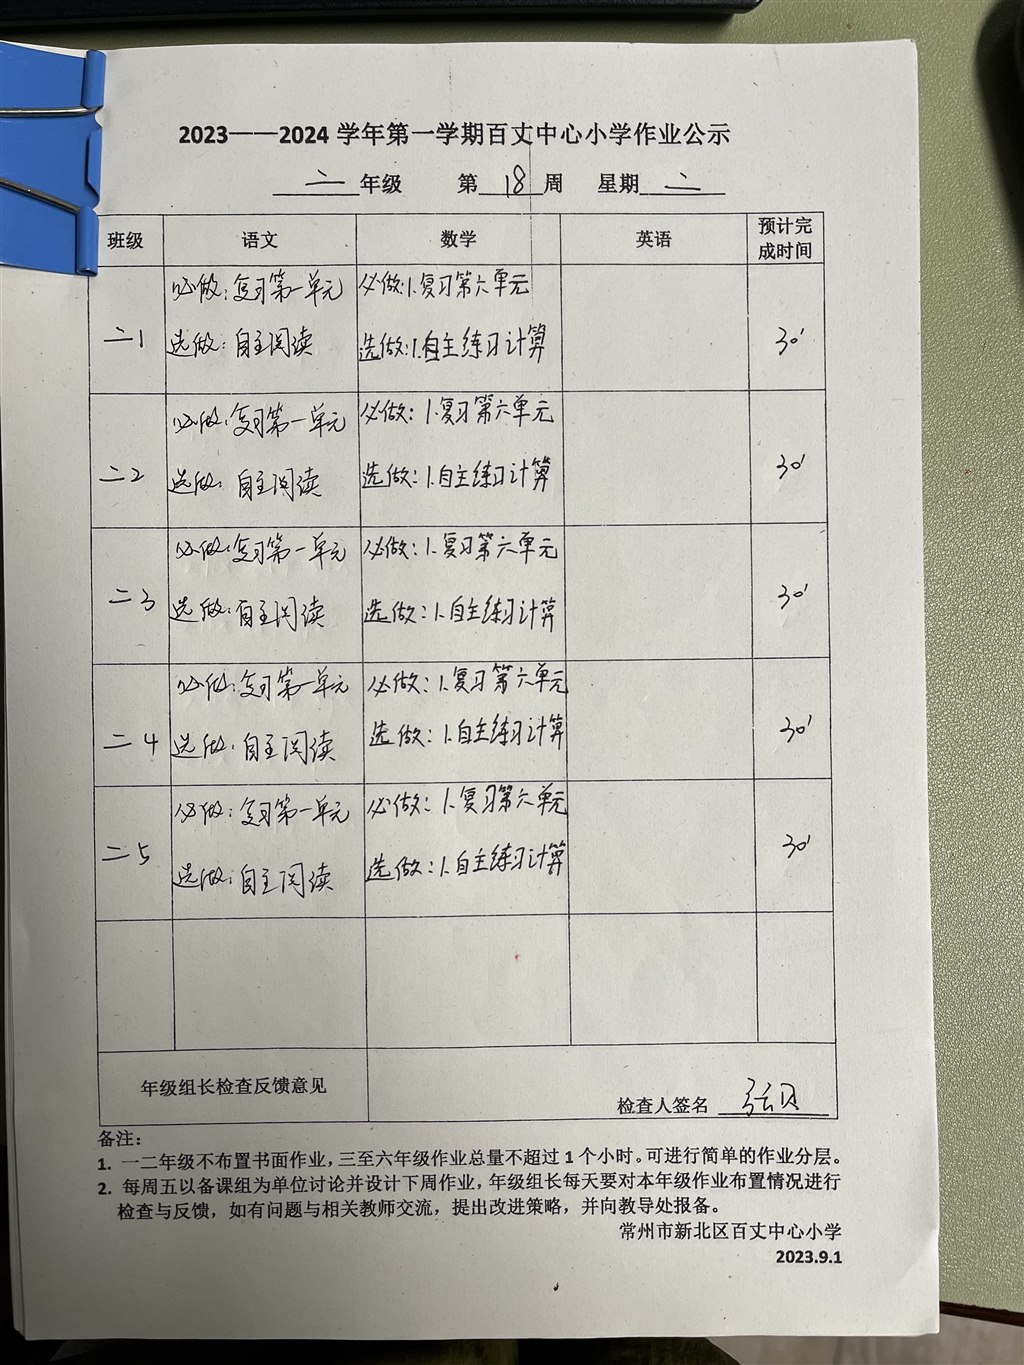 2023——2024 学年第一学期百丈中心小学作业公示
二 年级 第 18 周 星期 二
班级 语文 数学 英语 预计完成时间
必做:复习第一单元 必做:1.复习第六单元
二1 选做:自主阅读 选做:1.自主练习计算 30'
必做:复习第一单元 必做:1.复习第六单元
二2 选做:自主阅读 选做:1.自主练习计算 30'
必做:复习第一单元 必做:1.复习第六单元
二3 选做:自主阅读 选做:1.自主练习计算 30'
必做:复习第一单元 必做:1.复习第六单元
二4 选做:自主阅读 选做:1.自主练习计算 30'
必做:复习第一单元 必做:1.复习第六单元
二5 选做:自主阅读 选做:1.自主练习计算 30'
年级组长检查反馈意见
检查人签名
备注:
1. 一二年级不布置书面作业,三至六年级作业总量不超过 1 个小时。可进行简单的作业分层。
2. 每周五以备课组为单位讨论并设计下周作业,年级组长每天要对本年级作业布置情况进行
检查与反馈,如有问题与相关教师交流,提出改进策略,并向教导处报备。
常州市新北区百丈中心小学
2023.9.1